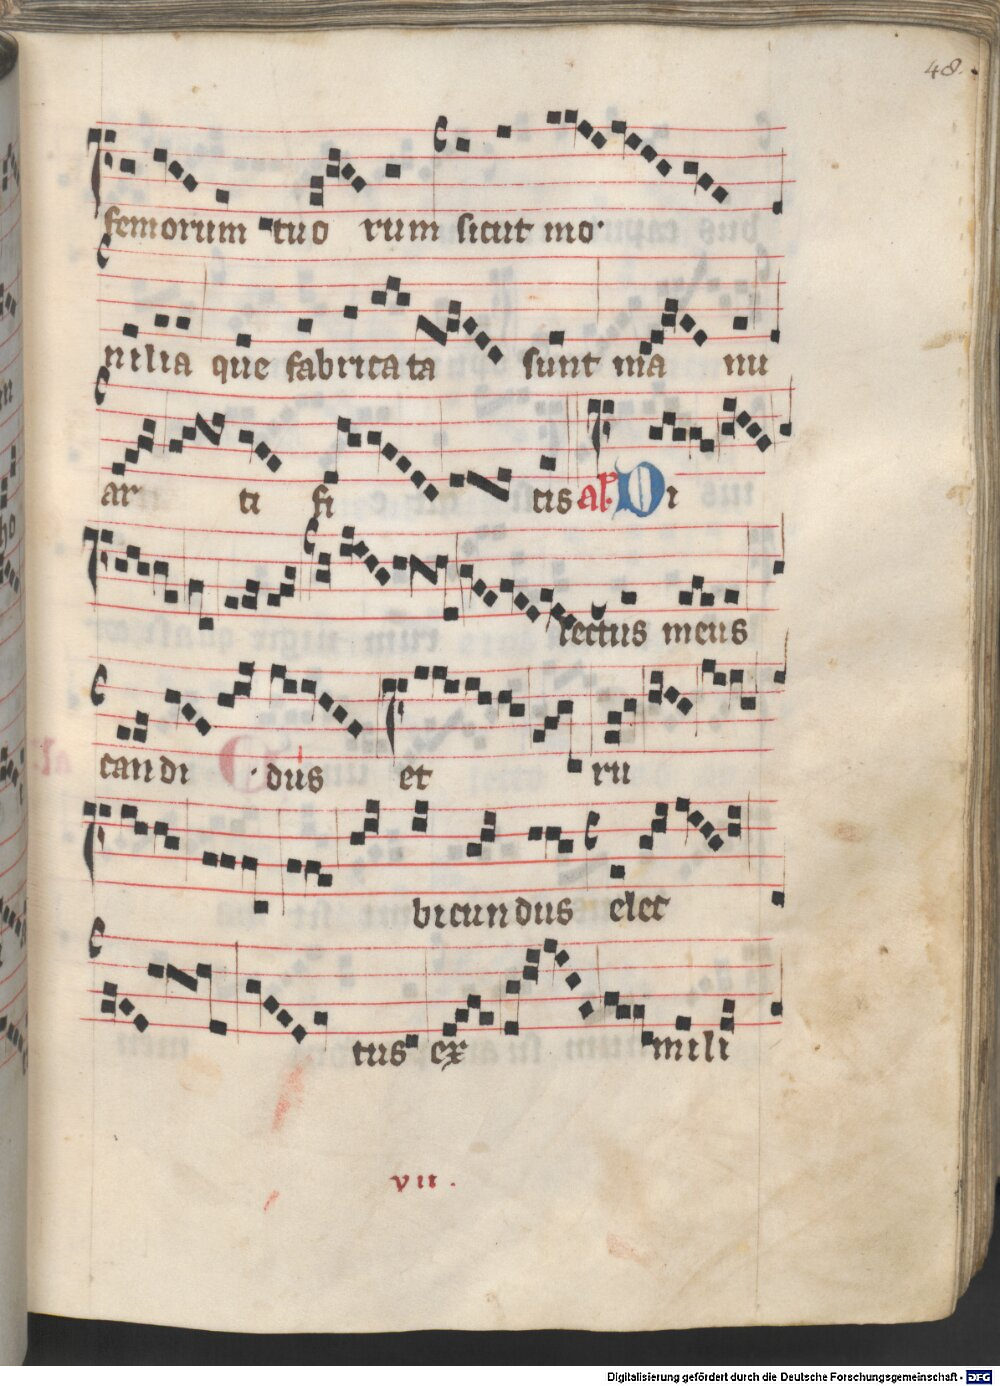 48.
femorum tuo rum sicut mo
nilia que fabricata sunt ma nu
ar ti fi tis al. Di
lectus meus
candi dus et ru
bicundus elec
tus ex mili
vii.
Digitalisierung gefördert durch die Deutsche Forschungsgemeinschaft - DFG